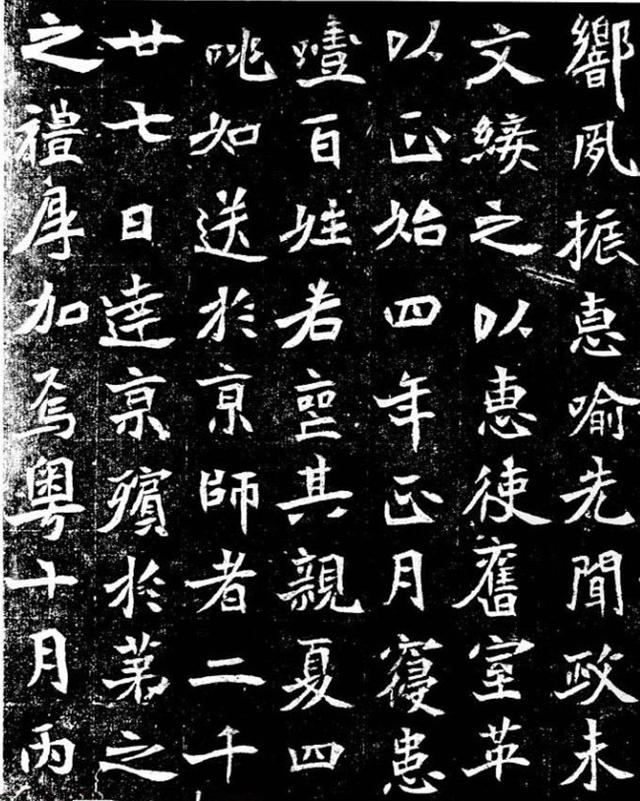 嚮夙振惠喻先聞政未
文綏之以惠使舊室革
以正始四年正月寢患
噎百姓若喪其親夏四
咷如送於京師者二千
廿七日達京殯於第之
之禮厚加焉粵十月丙